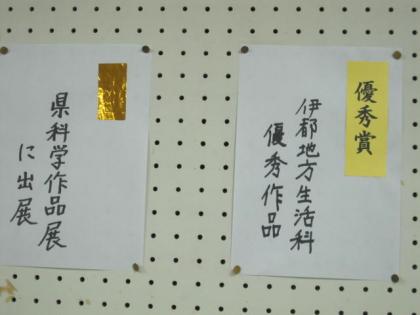 優秀賞
伊都地方生活科
優秀作品
県科学作品展
に出展